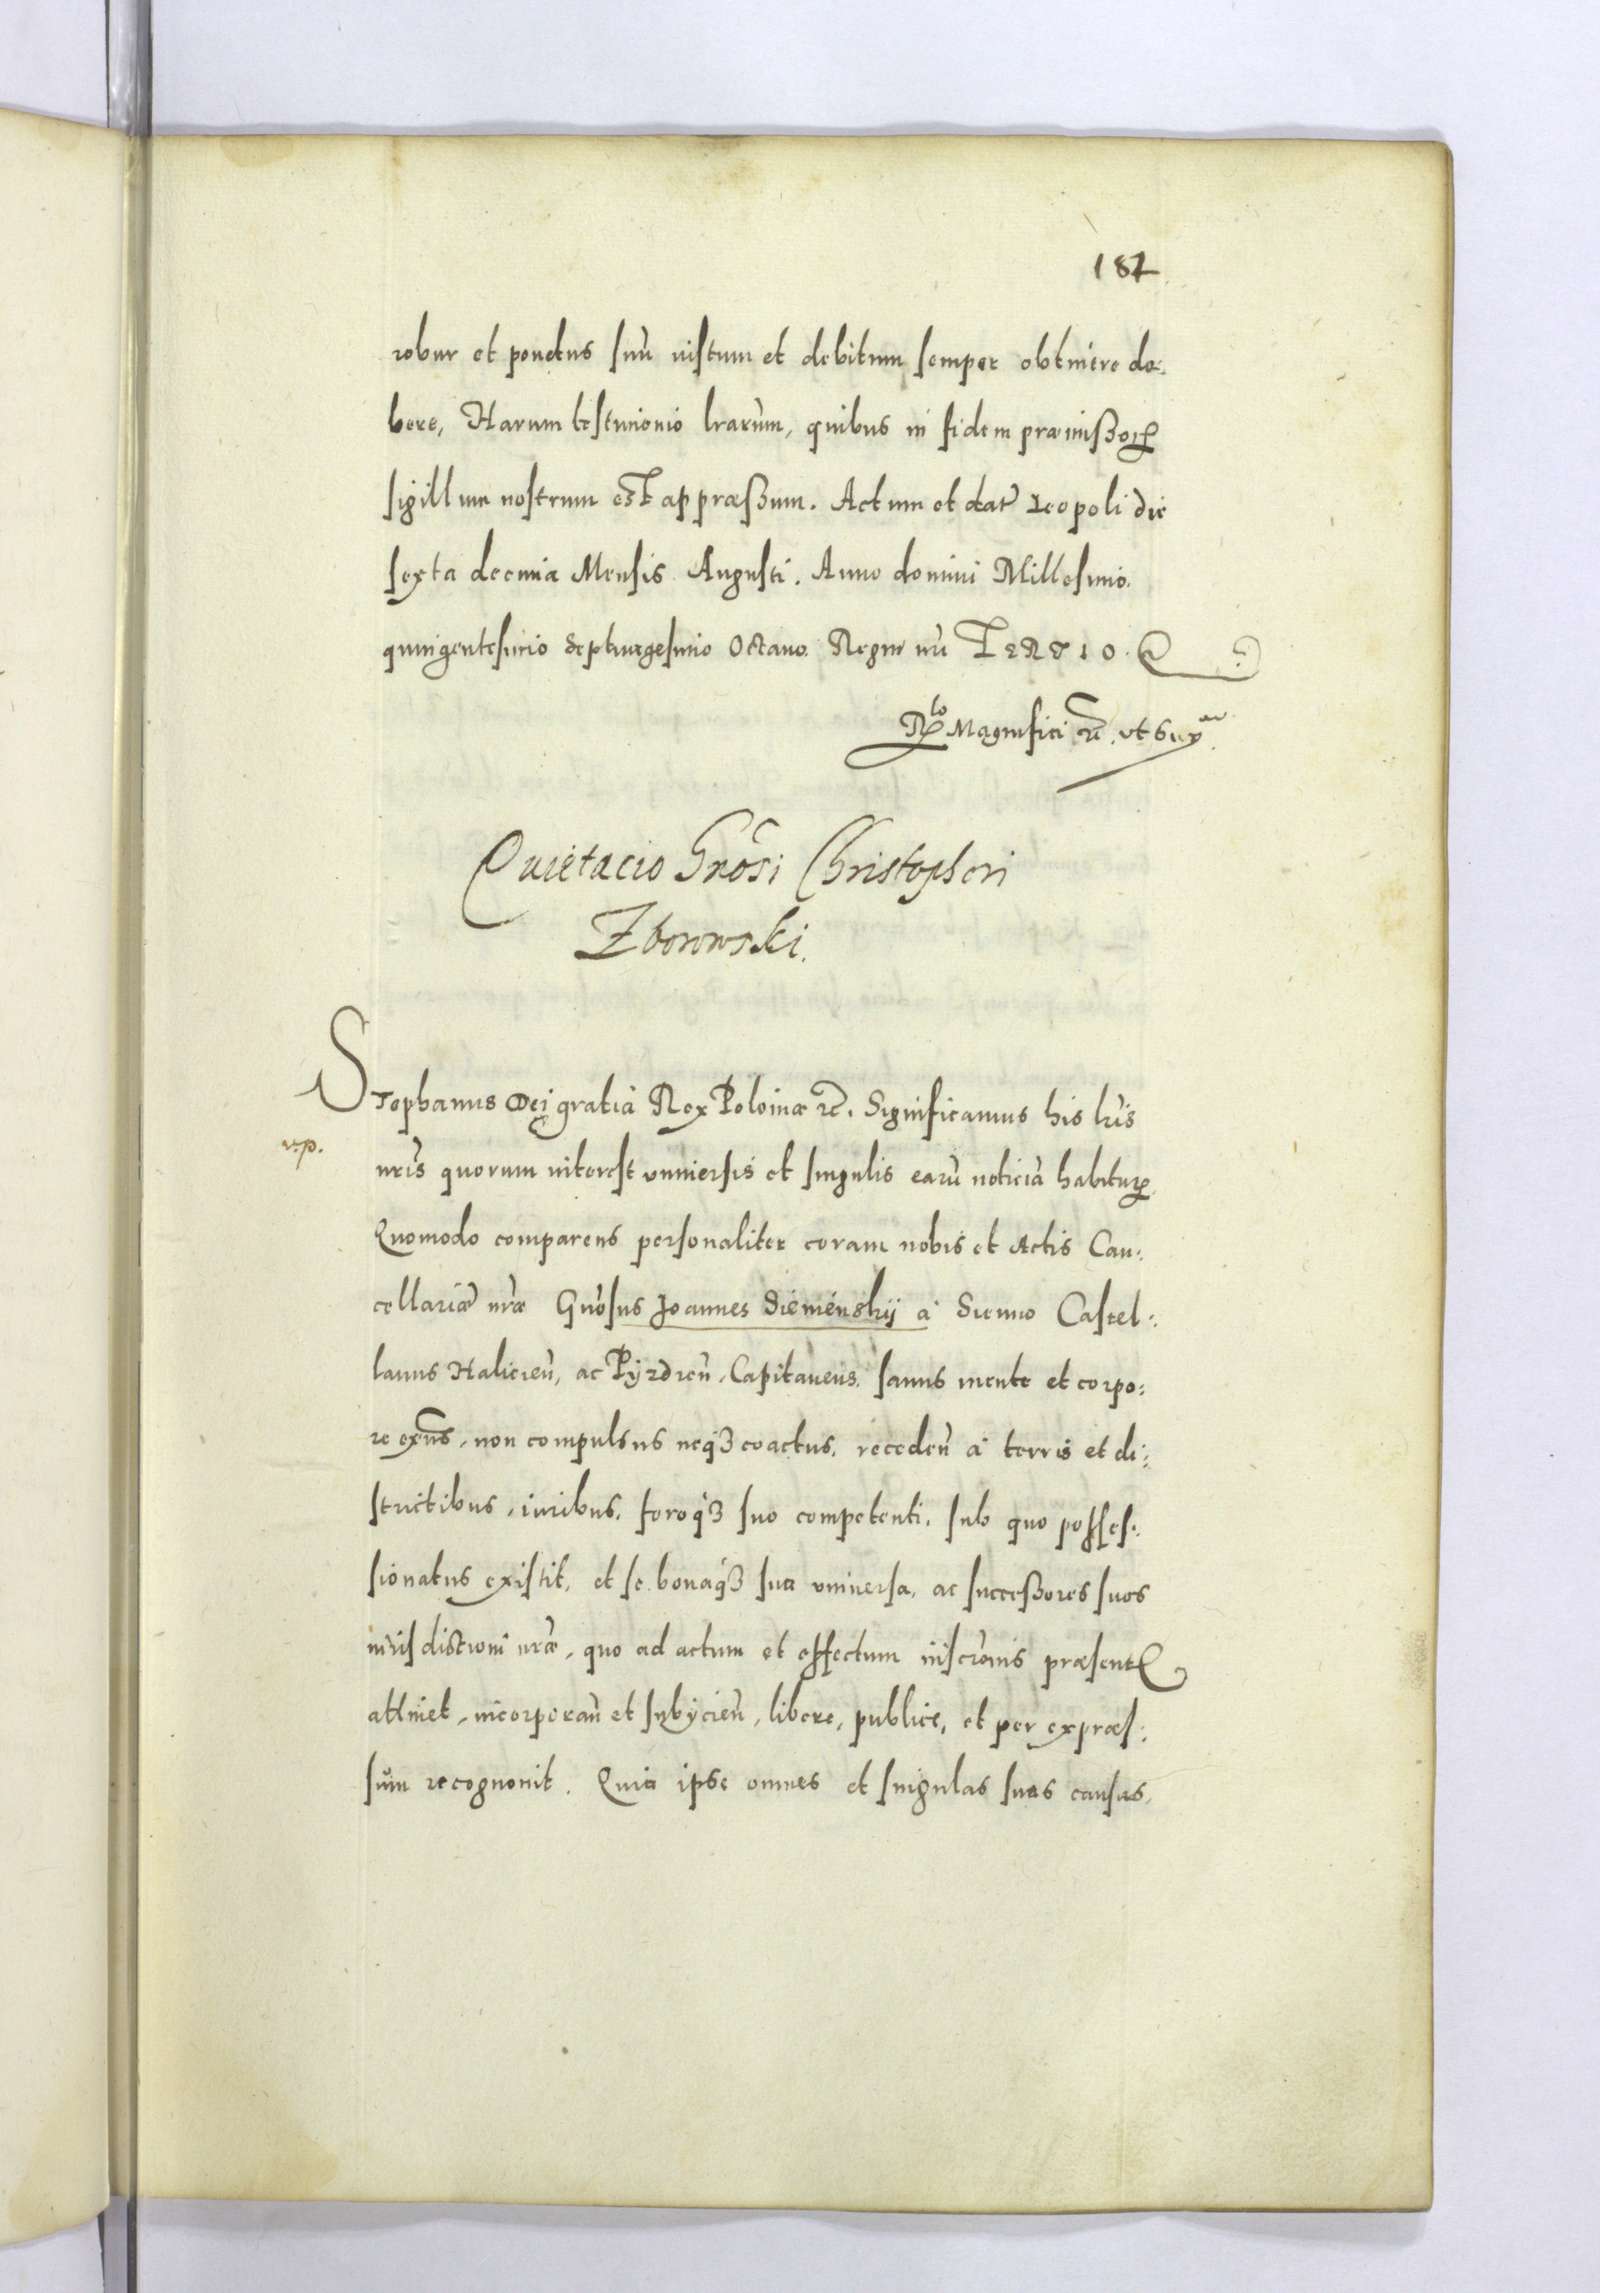 182
robur et pondus suū iustum et debitum semper obtinere de:
bere, Harum testimonio lrarum, quibus in fidem præmißoꝝ
sigillum nostrum est appræßum. Actum et datꝭ Leopoli die
sexta decima Mensis Augusti. Anno domini Millesimo.
quingentesimo septuagesimo Octauo. Regni nrī TERTIO.
Rlo Magnifici etc. ut supra
Quietacio Grosi Christopheri
Zborowski.
Stephanus Dei gratia Rex Poloniæ etc. Significamus his lrīs
v.p.
nrīs quorum interest vniuersis et singulis earū noticiā habituꝝ.
Quomodo comparens personaliter coram nobis et Actis Can:
cellariæ nrǣ Gnōsus Joannes Siemienskij à Sienno Castel:
lanus Haliciēn, ac Pyzdrēn. Capitaneus. sanus mente et corpo:
re exn̄s, non compulsus neqꝫ coactus, recedēn à terris et di:
strictibus, iuribus, foroqꝫ suo competenti, sub quo posses:
sionatus existit, et se bonaqꝫ sua vniuersa, ac succeßores suos
iurisdictioni nrǣ, quo ad actum et effectum inscrōnis præsentꝭ
attinet, incorporān et subijciēn, libere, publice, et per expræs:
sum recognouit. Quia ipse omnes et singulas suas causas,